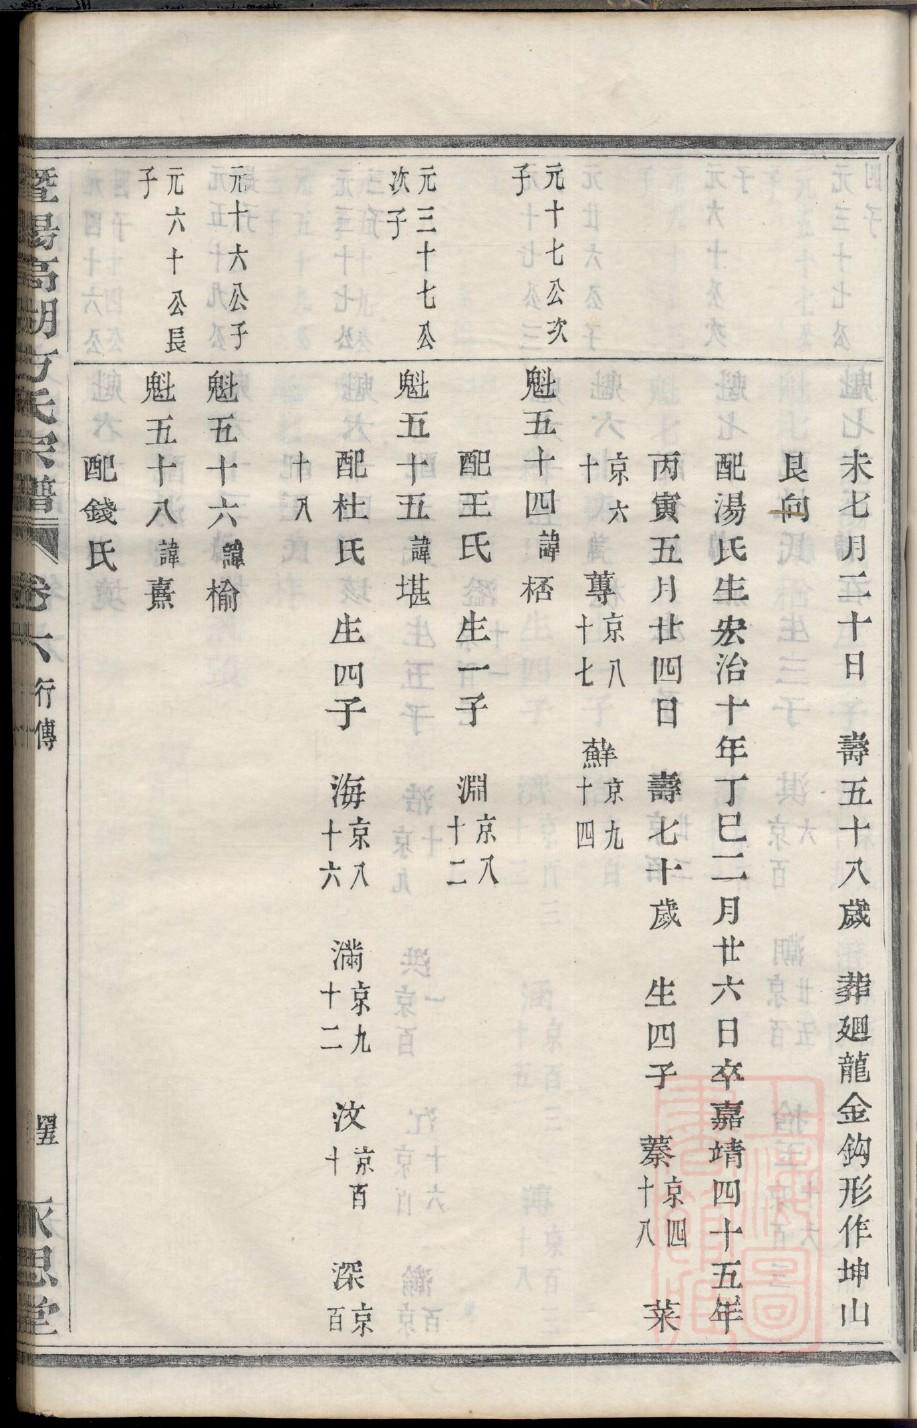 未七月二十日 壽五十八歲 葬廻龍金鈎形作坤山
艮向
配湯氏生宏治十年丁巳二月廿六日卒嘉靖四十五年
丙寅五月廿四日 壽七十歲 生四子 蓁京四十八 菜
京六十 蓴京八十七 蘚京九十四
元十七公次子
魁五十四諱栝
配王氏 生一子 淵京八十二
元三十七公次子
魁五十五諱堪
配杜氏 生四子 海京八十六 滿京九十二 汶京百十 深京百
十八
元十六公子
魁五十六諱榆
元六十公長子
魁五十八諱熹
配錢氏
暨陽高湖方氏宗譜 卷六 行傳 永思堂